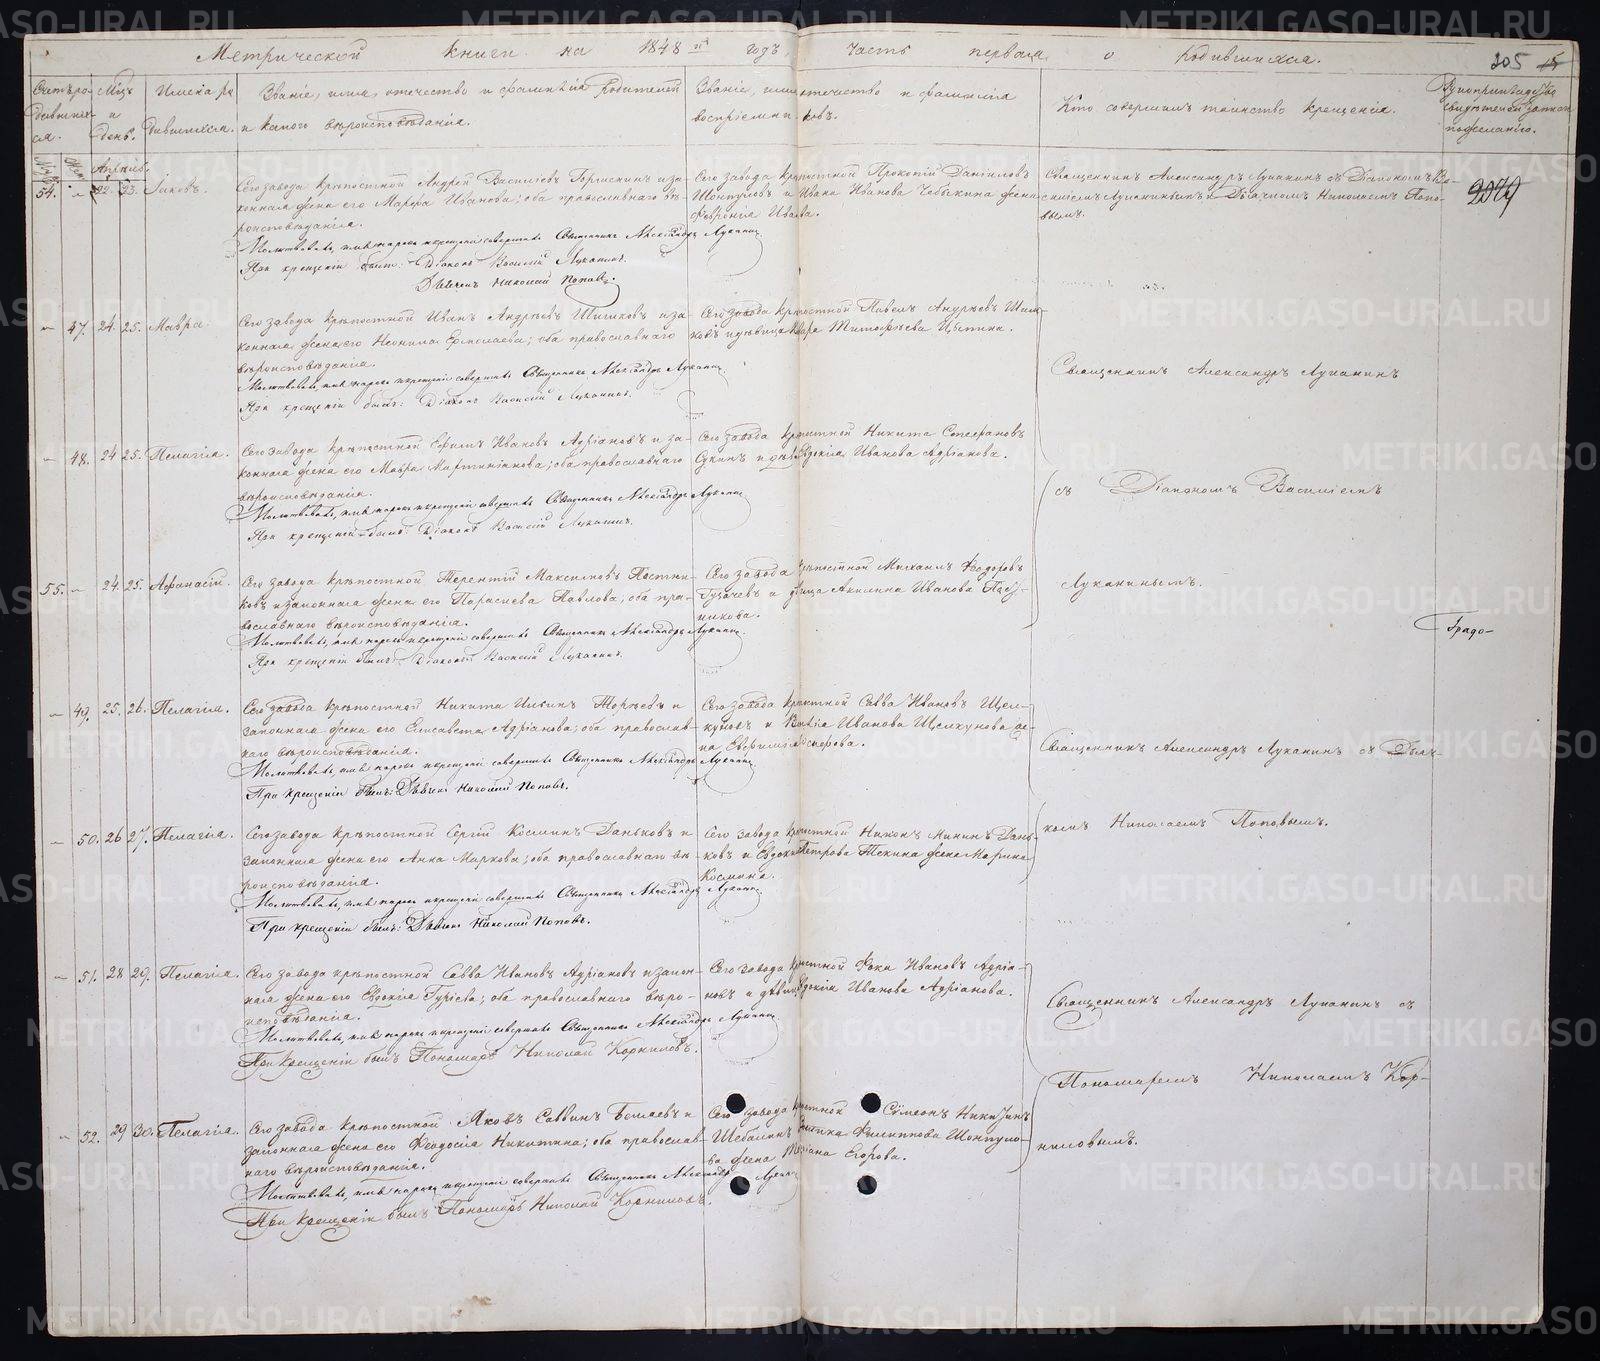 Метрической книги на 1848й годъ, часть первая, о родившихся.
205
Счетъ ро-
дивших-
ся.
Мѣц
и
день.
Имена ро
дившихся.
Званіе, имя, отечество и фамилія родителей
и какого вѣроисповѣданія.
Званіе, имя отечество и фамилія
воспріемни ковъ.
Кто совершилъ таинство крещенія.
Рукоприкладство
свидѣтелей записи
по желанію.
Апрѣль.
54. " 22. 23. Іаковъ.
Сего завода крѣпостной Андрей Васильевъ и за-
конная жена его Марфа Иванова; оба православнаго вѣ-
роисповѣданія.
Молитвовалъ, имя нарекъ и крещеніе совершилъ Священникъ Александръ Луканинъ
При крещеніи былъ: Діаконъ Василій Луканинъ.
Дьячекъ Николай Поповъ.
Сего завода крѣпостной Прокопій Даніиловъ
Шонтуловъ и Ивана Иванова Чебыкина жена
Февронія Ивова.
Священникъ Александръ Луканинъ съ Діакономъ Ва-
силіемъ Луканинымъ и Дьячкомъ Николаемъ Попо-
вымъ.
2079
" 47. 24. 25. Мавра.
Сего завода крѣпостной Иванъ Андреевъ Шишковъ и за-
конная жена его Неонила Ермолаева; оба православнаго
вѣроисповѣданія.
Молитвовалъ, имя нарекъ и крещеніе совершилъ Священникъ Александръ Луканинъ
При крещеніи былъ: Діаконъ Василій Луканинъ.
Сего завода крѣпостной Павелъ Андреевъ Шиш-
ковъ и дѣвица Тимофеева
Священникъ Александръ Луканинъ
" 48. 24 25. Пелагія.
Сего завода крѣпостной Ефимъ Ивановъ Адріановъ и за-
конная жена его Мавра Мартиніанова; оба православнаго
вѣроисповѣданія.
Молитвовалъ, имя нарекъ и крещеніе совершилъ Священникъ Александръ Луканинъ
При крещеніи былъ: Діаконъ Василій Луканинъ.
Сего завода крѣпостной Никита Стефановъ
Сукинъ и Евдокія Иванова Адріанова.
съ Діакономъ Василіемъ
55. " 24. 25. Афанасій.
Сего завода крѣпостной Терентій Максимовъ Постни-
ковъ и законная жена его Параскева Павлова; оба пра-
вославнаго вѣроисповѣданія.
Молитвовалъ, имя нарекъ и крещеніе совершилъ Священникъ Александръ Луканинъ
При крещеніи былъ: Діаконъ Василій Луканинъ.
Сего завода крѣпостной Михаилъ Ѳедоровъ
и дѣвица Акилина Иванова
Луканинымъ.
Градо-
" 49. 25. 26. Пелагія.
Сего завода крѣпостной Никита и
законная жена его Елисавета Адріанова; оба православ-
наго вѣроисповѣданія.
Молитвовалъ, имя нарекъ и крещеніе совершилъ Священникъ Александръ Луканинъ
При крещеніи былъ: Дьячекъ Николай Поповъ.
Сего завода крѣпостной Савва Ивановъ Щел-
куновъ и Иванова Щелкунова же-
на Евфимія
Священникъ Александръ Луканинъ съ Дьяч-
" 50. 26 27. Пелагія.
Сего завода крѣпостной Сергій Косминъ Даньковъ и
законная жена его Анна Маркова; оба православнаго вѣ-
роисповѣданія.
Молитвовалъ, имя нарекъ и крещеніе совершилъ Священникъ Александръ Луканинъ
При крещеніи былъ: Дьячекъ Николай Поповъ.
Сего завода крѣпостной Никонъ Мининъ Дань-
ковъ и Петрова Текина жена Марина
Космина.
комъ Николаемъ Поповымъ.
" 51. 28 29. Пелагія.
Сего завода крѣпостной Савва Ивановъ Адріановъ и закон-
ная жена его Евдокія Гуріева; оба православнаго вѣро-
исповѣданія.
Молитвовалъ, имя нарекъ и крещеніе совершилъ Священникъ Александръ Луканинъ
При крещеніи былъ Пономарь Николай Корниловъ.
Сего завода крѣпостной Фока Ивановъ Адріа-
новъ и дѣвица Евдокія Иванова Адріанова.
Священникъ Александръ Луканинъ съ
Пономаремъ Николаемъ Кор-
" 52. 29 30. Пелагія.
Сего завода крѣпостной Яковъ Саввинъ и
законная жена его Ѳеодосія Никитина; оба православ-
наго вѣроисповѣданія.
Молитвовалъ, имя нарекъ и крещеніе совершилъ Священникъ Александръ Луканинъ
При крещеніи былъ Пономарь Николай Корниловъ.
Сего завода крѣпостной Сѵмеонъ
Шебалинъ Филиппова Шонтуло-
ва жена Егорова.
ниловымъ.
METRIKI.GASO-URAL.RU